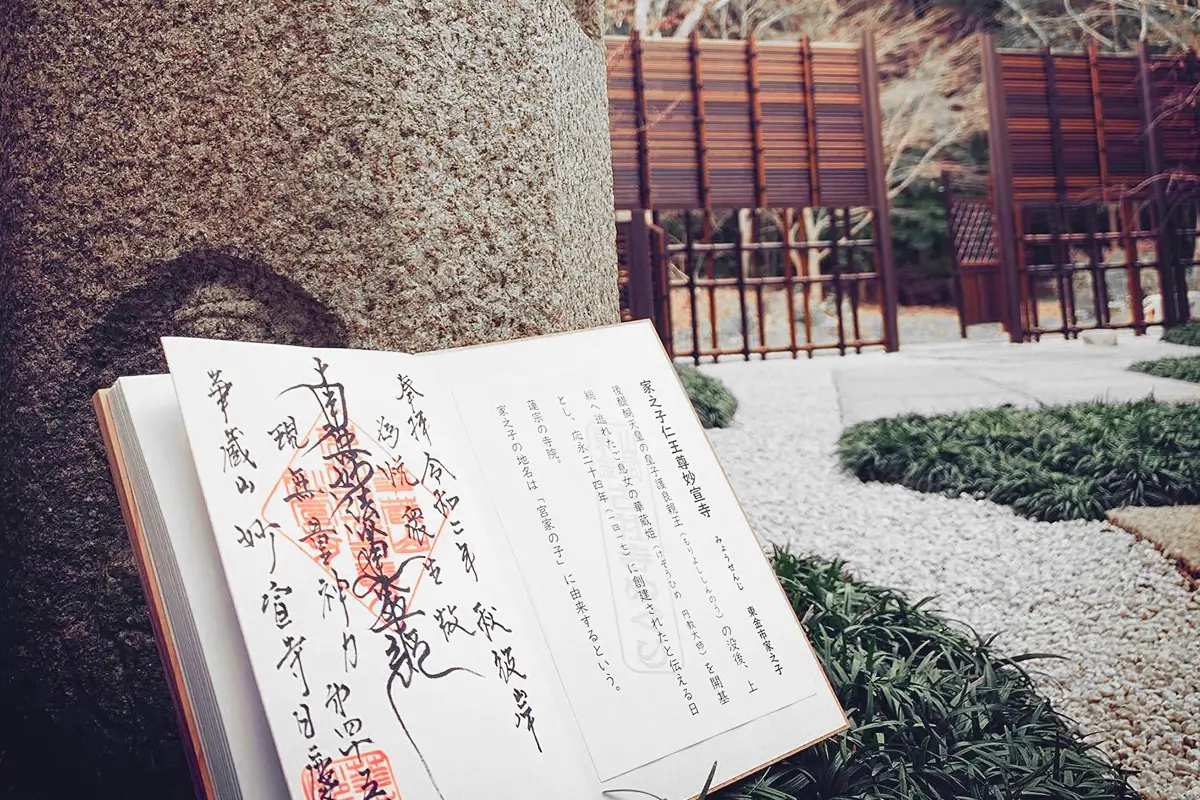 家之子仁王尊妙宣寺 みょうせんじ 東金市家之子
後醍醐天皇の皇子護良親王（もりよししんのう）の没後、上
総へ逃れたご息女の華蔵姫（けぞうひめ 円教大姉）を開基
とし、応永二十四年（一四一七）に創建されたと伝える日
蓮宗の寺院。
家之子の地名は「宮家の子」に由来するという。
奉拝 令和二年 秋彼岸
為悦衆生故
南無妙法蓮華経
現無量神力 第四十五
華蔵山 妙宣寺 日慶